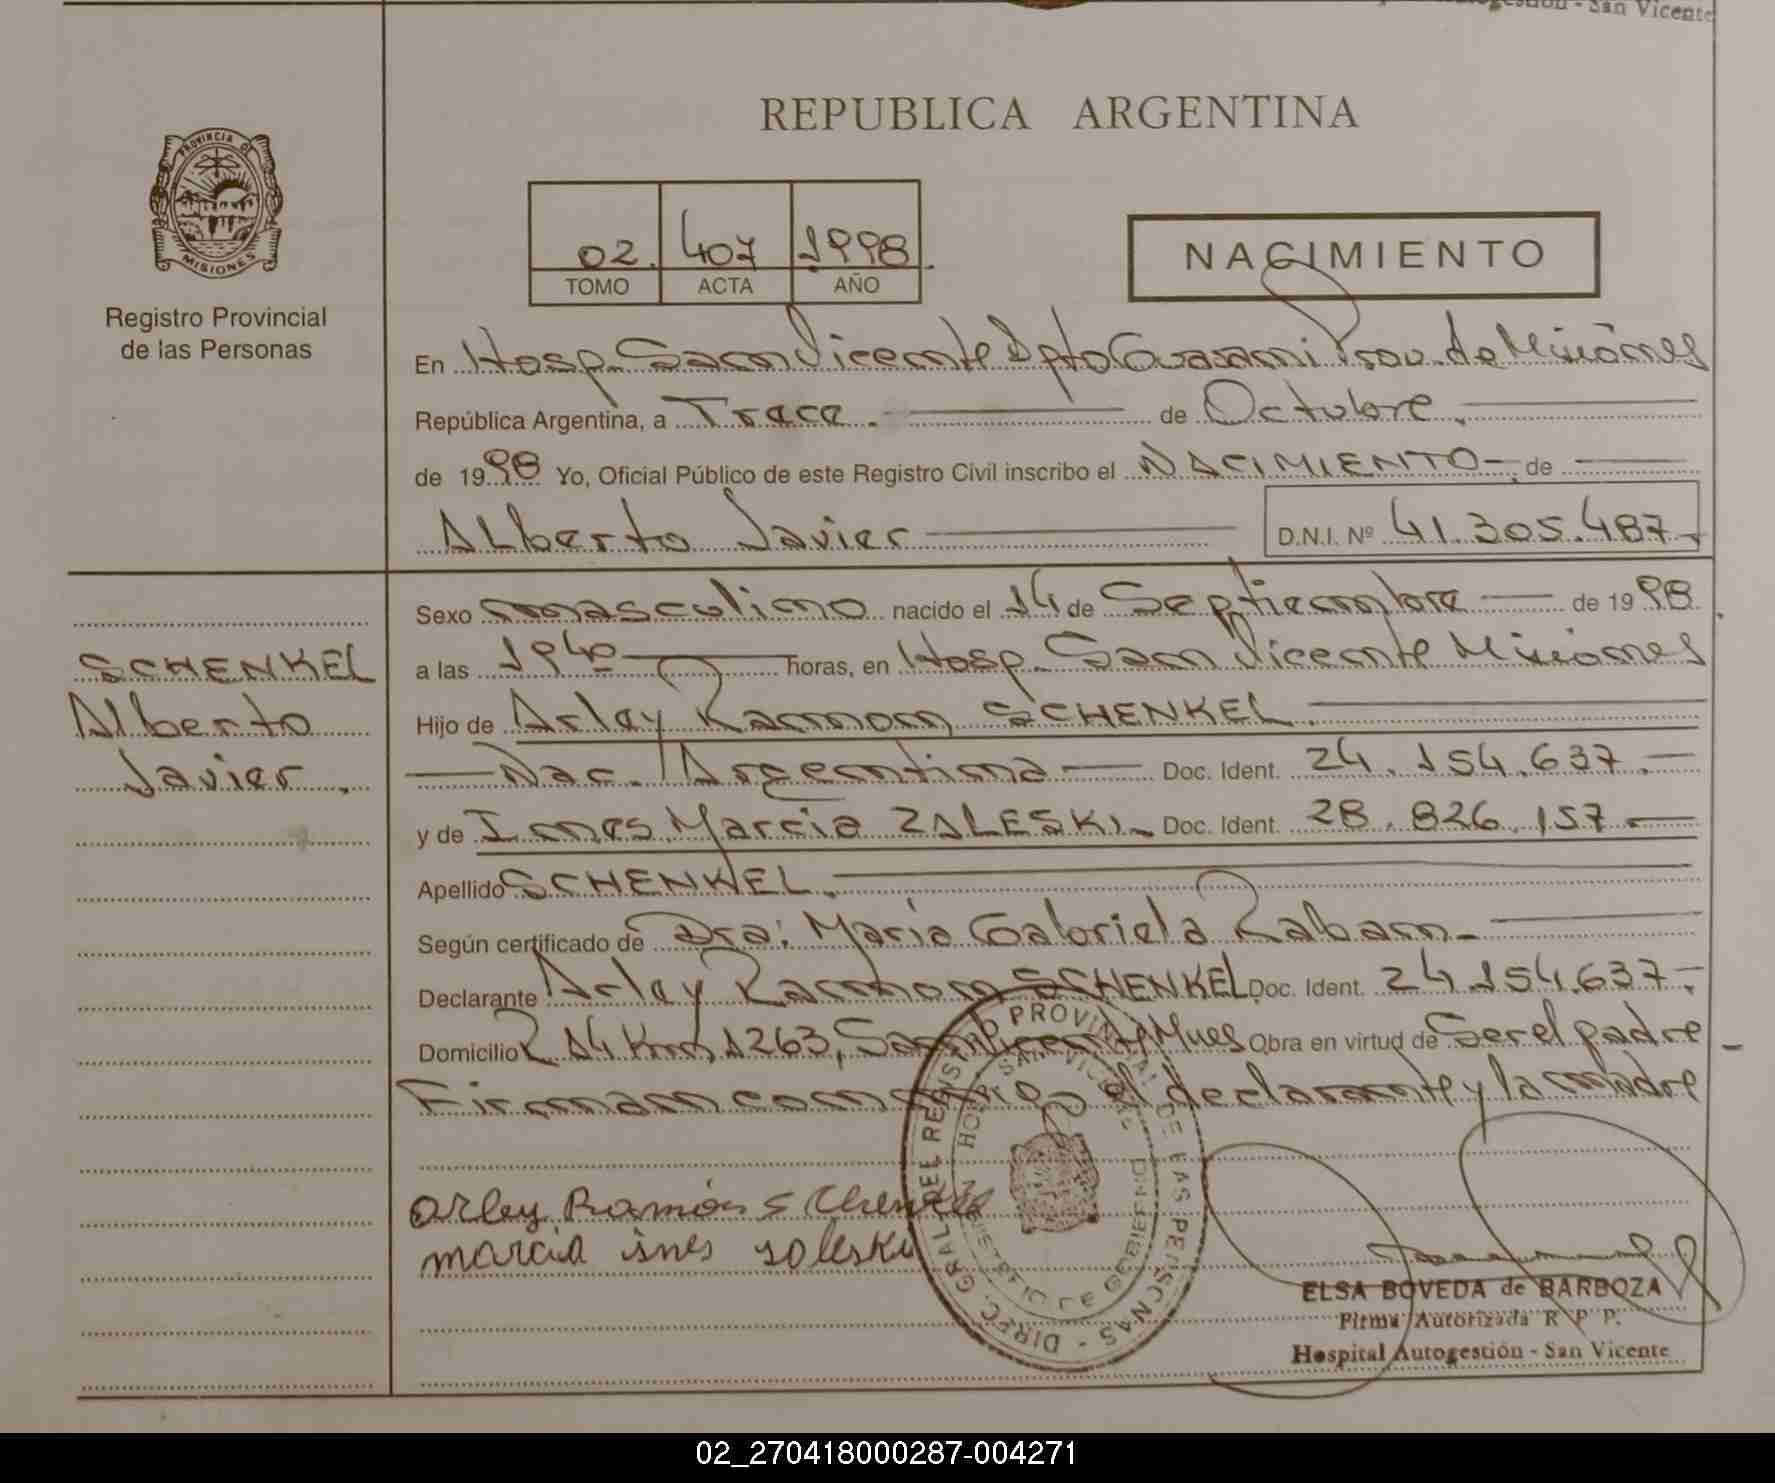 San Vicente
REPUBLICA ARGENTINA
PROVINCIA DE
MISIONES
Registro Provincial
de las Personas
02. 407 1998.
TOMO ACTA AÑO
NACIMIENTO
En Hosp. San Vicente Dpto Guarani Prov. de Misiones
República Argentina, a Trece. de Octubre.
de 1998 Yo, Oficial Público de este Registro Civil inscribo el NACIMIENTO- de
Alberto Javier D.N.I. Nº 41.305.487.-
Sexo masculino nacido el 14 de Septiembre de 1998.
a las 1940 horas, en Hosp. San Vicente Misiones
Hijo de Arley Ramon SCHENKEL.
Nac. Argentina Doc. Ident. 24.154.637.-
y de Ines Marcia ZALESKI.- Doc. Ident. 28.826.157.-
Apellido SCHENKEL.
Según certificado de Dra: Maria Gabriela Raban.-
Declarante Arley Ramon SCHENKEL Doc. Ident. 24.154.637.-
Domicilio R 14 Km 1263, San Vicente Mnes Obra en virtud de Ser el padre-
Firman conmigo el declarante y la madre
SCHENKEL
Alberto
Javier.
Arley Ramón Schenkel
marcia ines zaleski
DIREC. GRAL. DEL REGISTRO PROVINCIAL DE LAS PERSONAS
HOSP. SAN VICENTE
MINISTERIO DE GOBIERNO
ELSA BOVEDA de BARBOZA
Firma Autorizada R. P. P.
Hospital Autogestión - San Vicente
02_270418000287-004271